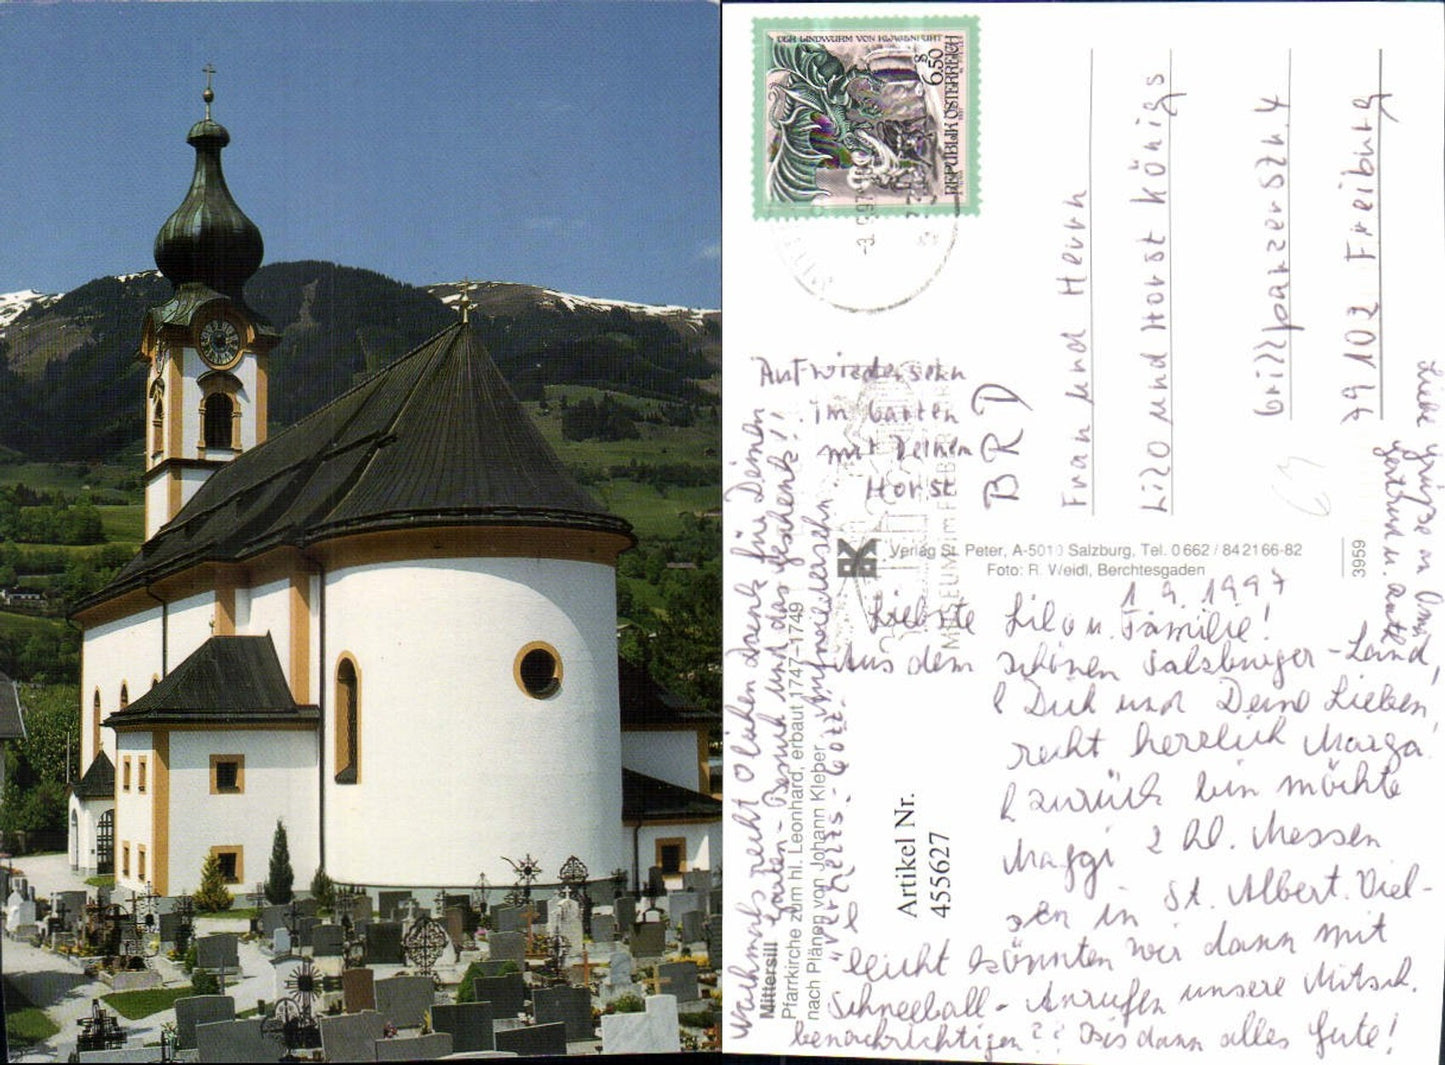 DER LINDWURM VON KLAGENFURT
S 6.50
REPUBLIK ÖSTERREICH
Frau und Herrn
Lilo und Horst Königs
Grillparzerstr. 4
79102 Freiburg
BRD
Auf Wiedersehn
im Garten
mit Deinem
Horst
Verlag St. Peter, A-5010 Salzburg, Tel. 0662/842166-82
Foto: R. Weidl, Berchtesgaden
3959
MUSEUM IM FELBER
1.9.1997
Liebste Lilo u. Familie!
Aus dem schönen Salzburger-Land,
Dich und Deine Lieben,
recht herzlich Marga.
zurück bin möchte
Maggi 2 hl. Messen
in St. Albert. Viel-
leicht könnten wir dann mit
Schneeball-Anrufen unsere Mitsch.
benachrichtigen?? Bis dann alles Gute!
Liebe Grüße an Oma
Gertrud u.
Nochmals recht lichen Dank für Deinen
Garten-Besuch und das Geschenk!!
Mittersill
Pfarrkirche zum hl. Leonhard, erbaut 1747–1749
nach Plänen von Johann Kleber
Artikel Nr.
455627